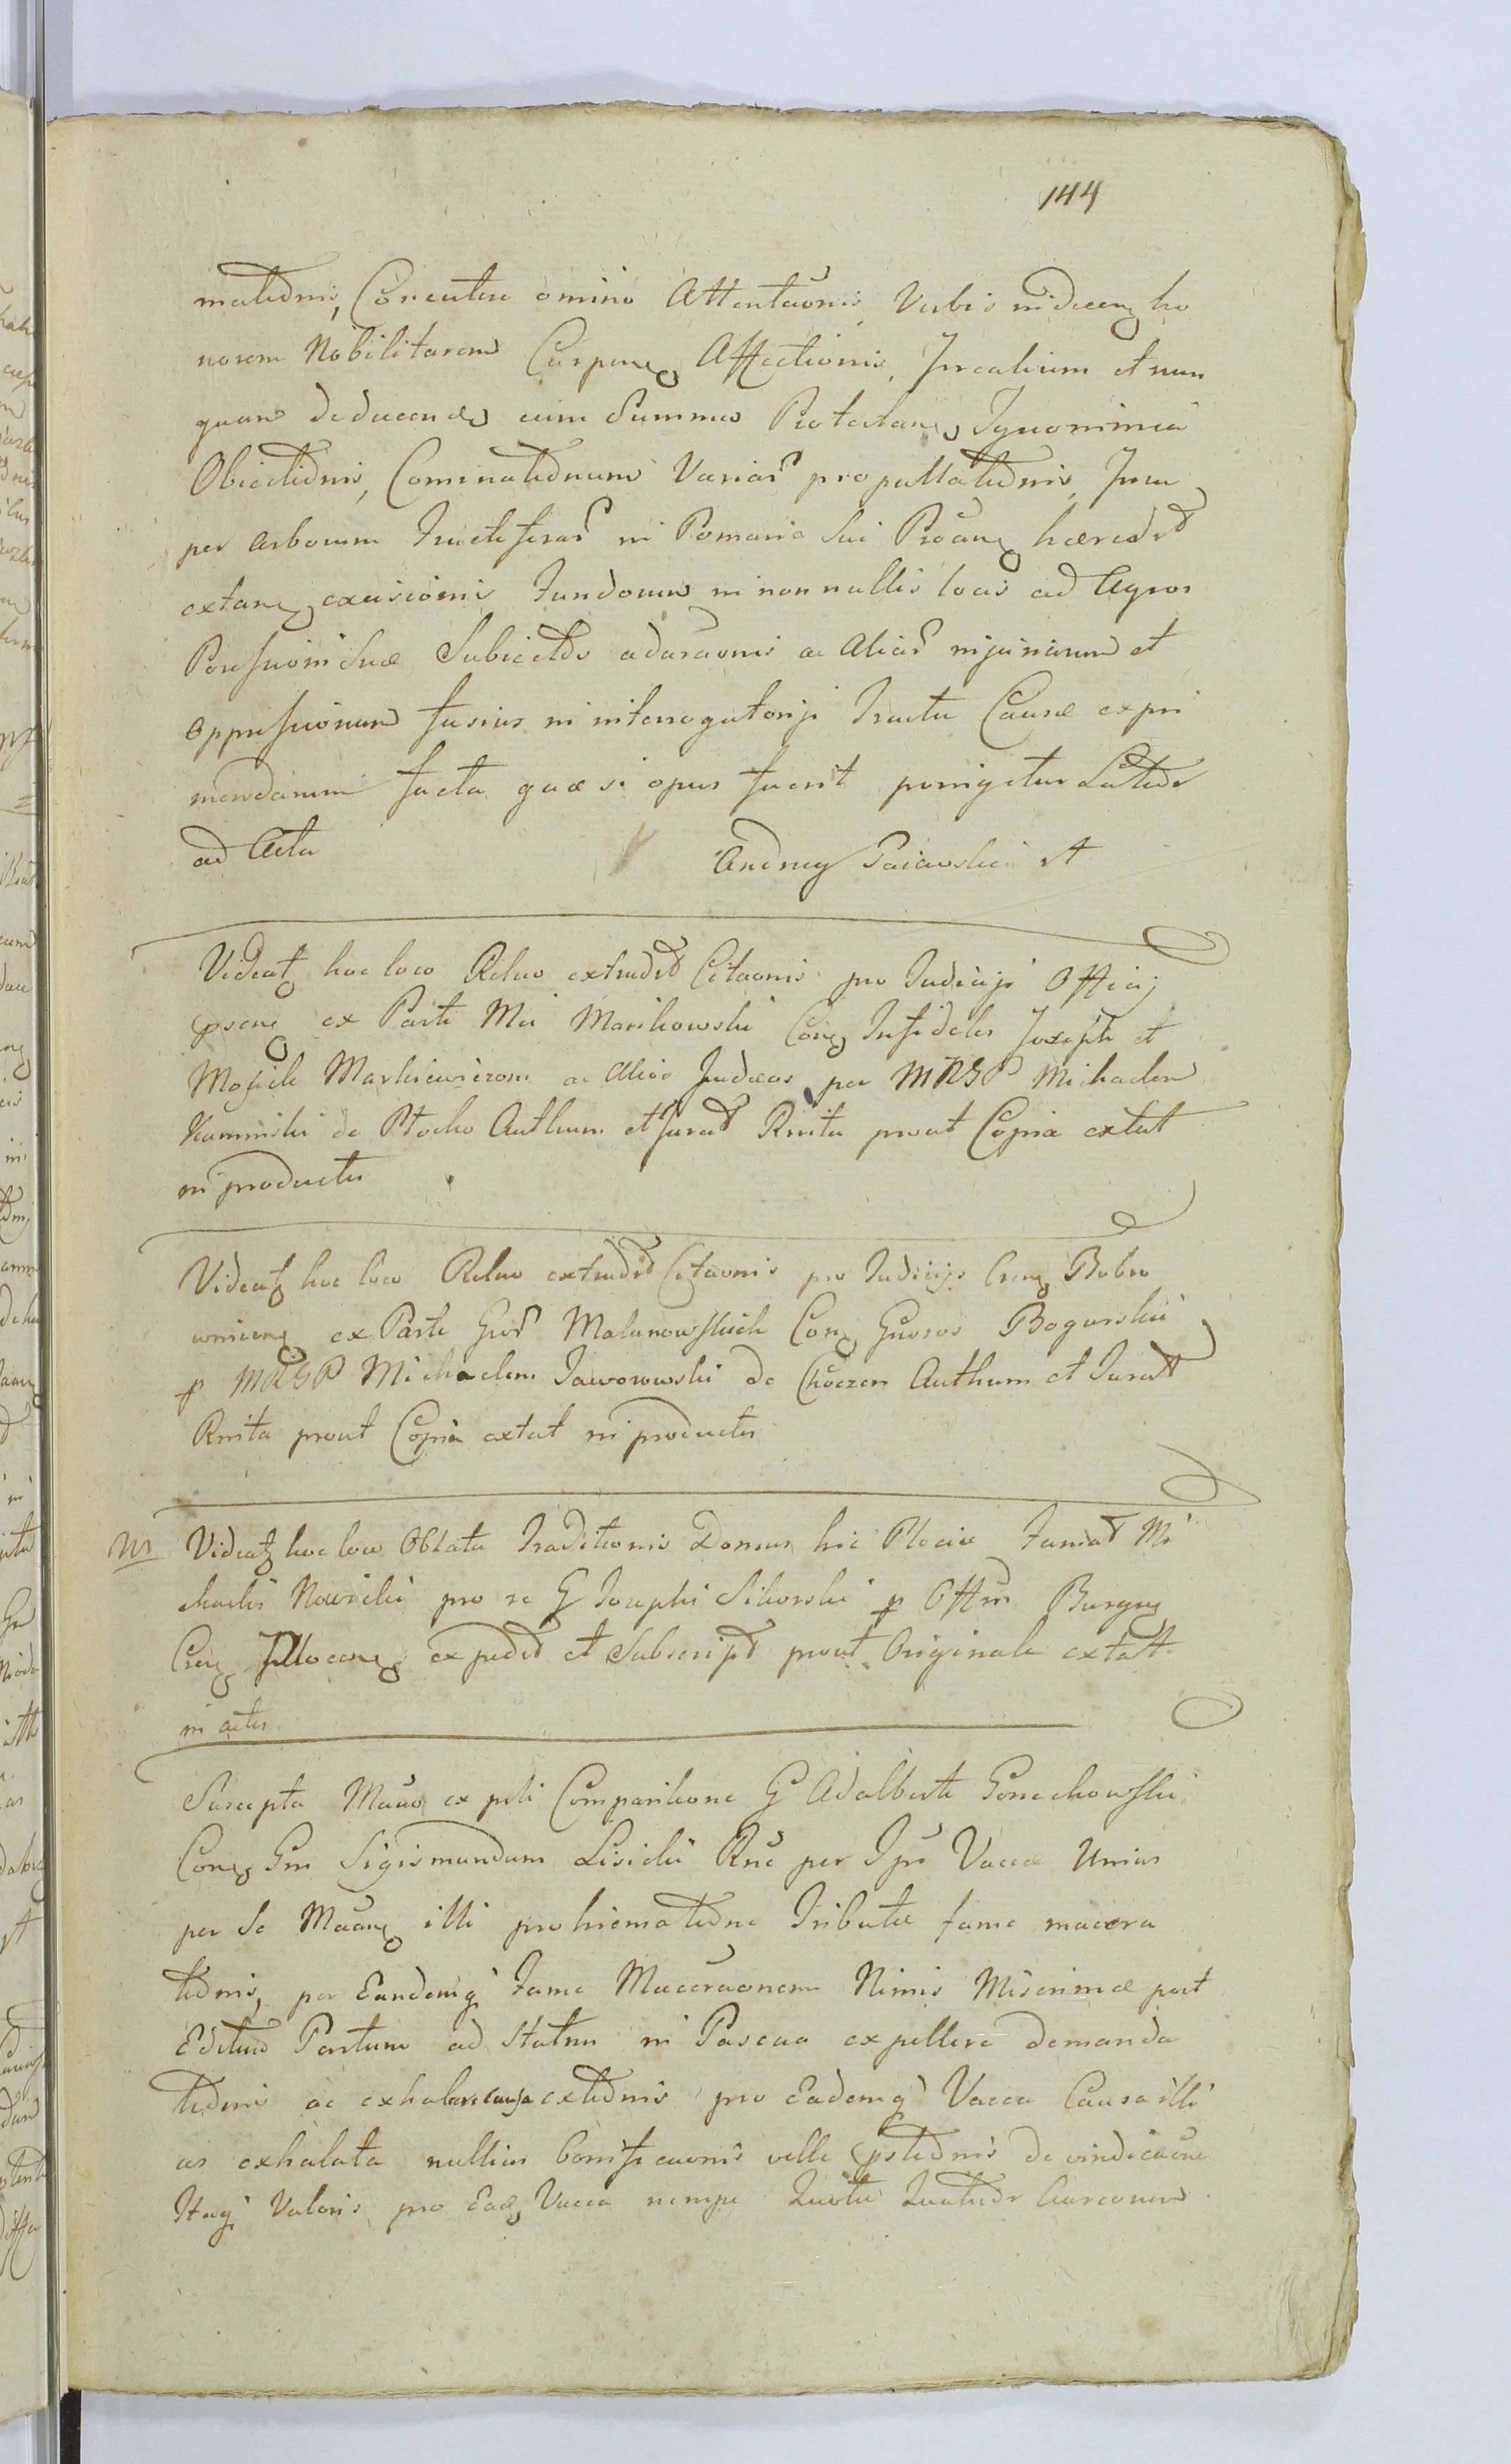 144
Concutere omino Attentaõnis Verbis indecen ho
norem Nobilitarem Carpen Affectionis, Irrealium et nun
quam deducendis cum Summa Protestan Ignominia
Obiectiõnis, Cominatiõnum Variar propullatiõnis,
per arborum fructiferar in Pomario sui Proãn hæredit
extan excisionis Fundorum in non nullis locis ad Agros
Possessionis suæ Subiect adaraõnis ac Aliar injuriarum et
oppressionum fusius in interrogatorijs Tractu Causæ expri
mendarum facta quæ si opus fuerit porrigetur Latiõr
ad Acta Andrzey Paiawski
Videat hoc loco Relao extradit Citaonis pro Judicijs Officij
psens ex Parte Mci Manikowski Con Infideles Joseph et
Moszek Markiewiczom ac Alios Judæos per MRGP Michaelem
Kaminski de Plocko Authum et Jurat Rnita prout Copia extat
in productis
Videat hoc loco Relao extradit Citaonis pro Judicijs Cren Bobro
wnicen ex Parte Gnor Malanowskich Con Gnosos Bogurskii
p MRGP Michaelem Jaworowski de Choczen Authum et Jurat
Rnita prout Copia extat in productis
Ns Videat hoc loco Oblata Traditionis Domus hic Plociæ Famat Mi
chaelis Nowicki pro re G Josephi Sikorski p Offm Burgen
Cren Plocen expedit et Subscript prout Originale extat
in actis
Suscepta Mãno ex psti Comparitione G Adalberti Gonschowski
Con Gm Sigismundum Lisicki Rne per Ipm Vaccæ Unius
per Se Mãan illi pro hiematiõne Tributæ fame macera
tiõnis, per Eandemq Fame Maceraonem Nimis Miserrimæ post
Editum Partum ad statum in Pascua expellere demanda
tiõnis ac exhalare causa extiõnis pro Eademq Vacca Causa illi
us exhalata nullius bonificaonis velle pstiõnis de vindicaõne
Itaq Valoris pro Eadem Vacca nempe Aureorum